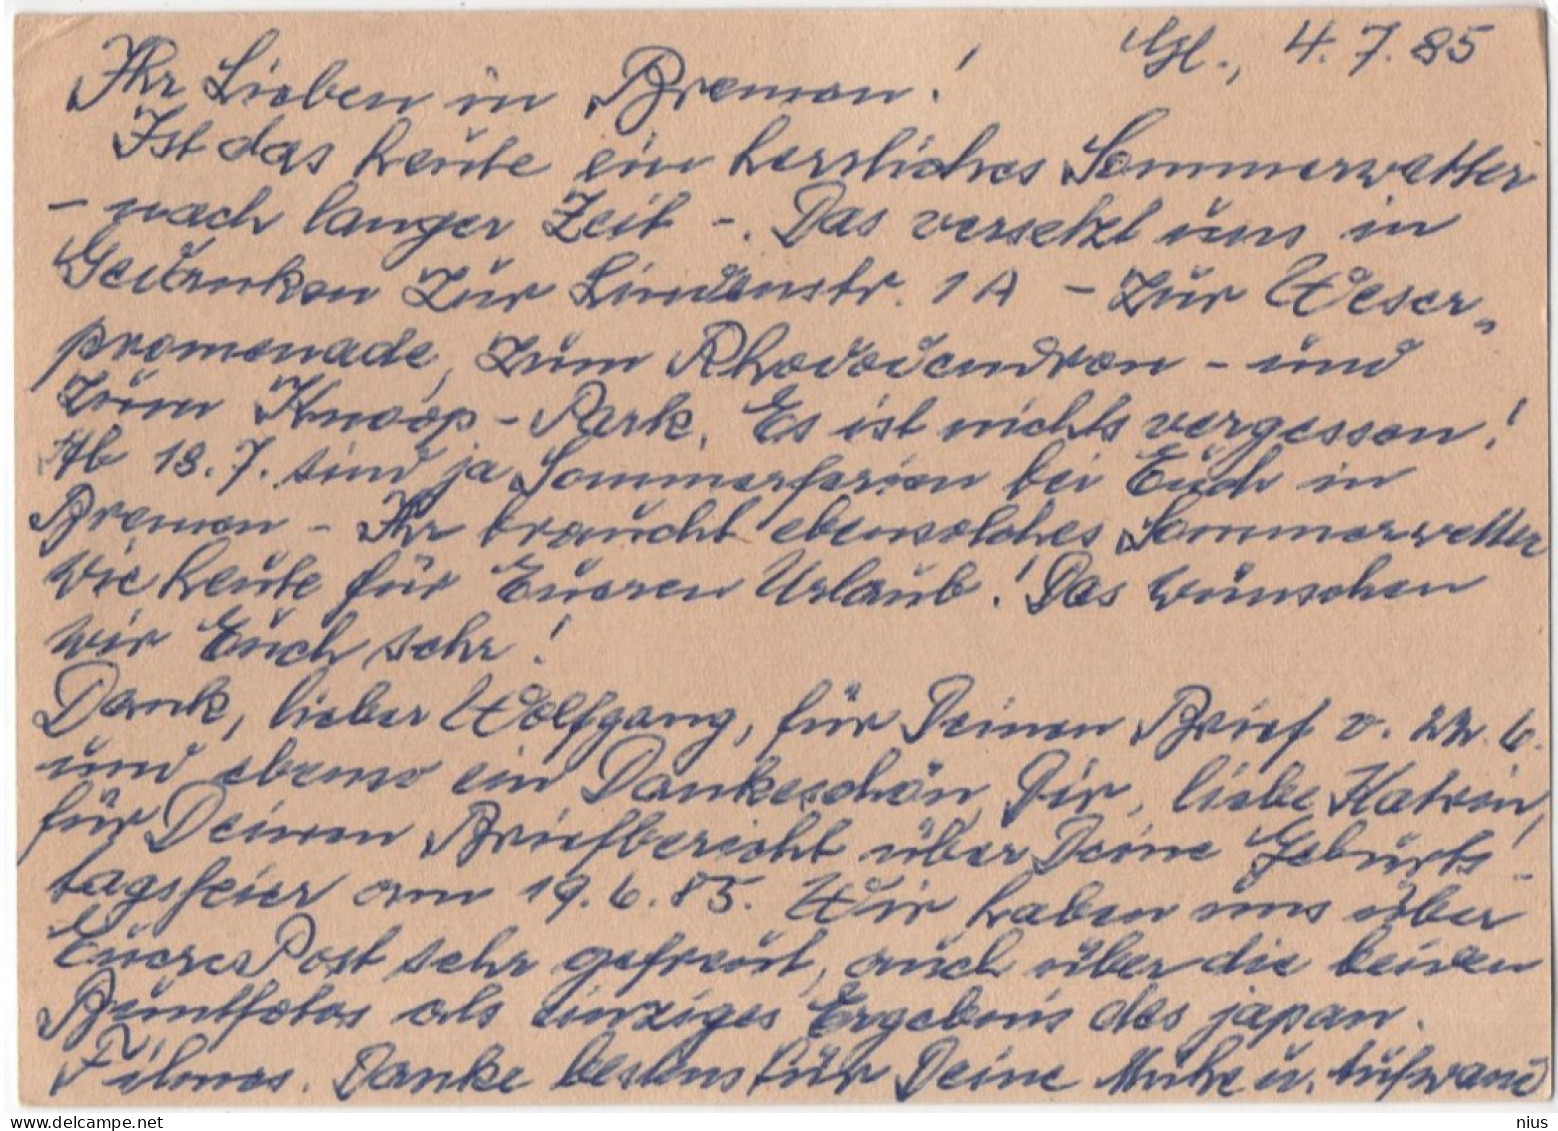 Gl., 4.7.85
Ihr Lieben in Bremen!
Ist das heute ein herrliches Sommerwetter
- nach langer Zeit -. Das versetzt uns in
Gedanken zur Lindenstr. 1A - zur Weser-
promenade, zum Rhododendron - und
zum Knoop-Park. Es ist nichts vergessen!
Ab 18.7. sind ja Sommerferien bei Euch in
Bremen - Ihr braucht ebensolches Sommerwetter
wie heute für Eueren Urlaub! Das wünschen
wir Euch sehr!
Dank, lieber Wolfgang, für Deinen Brief v. 22.6.
und ebenso ein Dankeschön Dir, liebe Katrin,
für Deinen Briefbericht über Deine Geburts-
tagsfeier am 19.6.85. Wir haben uns über
Euere Post sehr gefreut, auch über die beiden
Buntfotos als einziges Ergebnis des japan.
Filmes. Danke bestens für Deine Mühe u. Aufwand
delcampe.net
nius